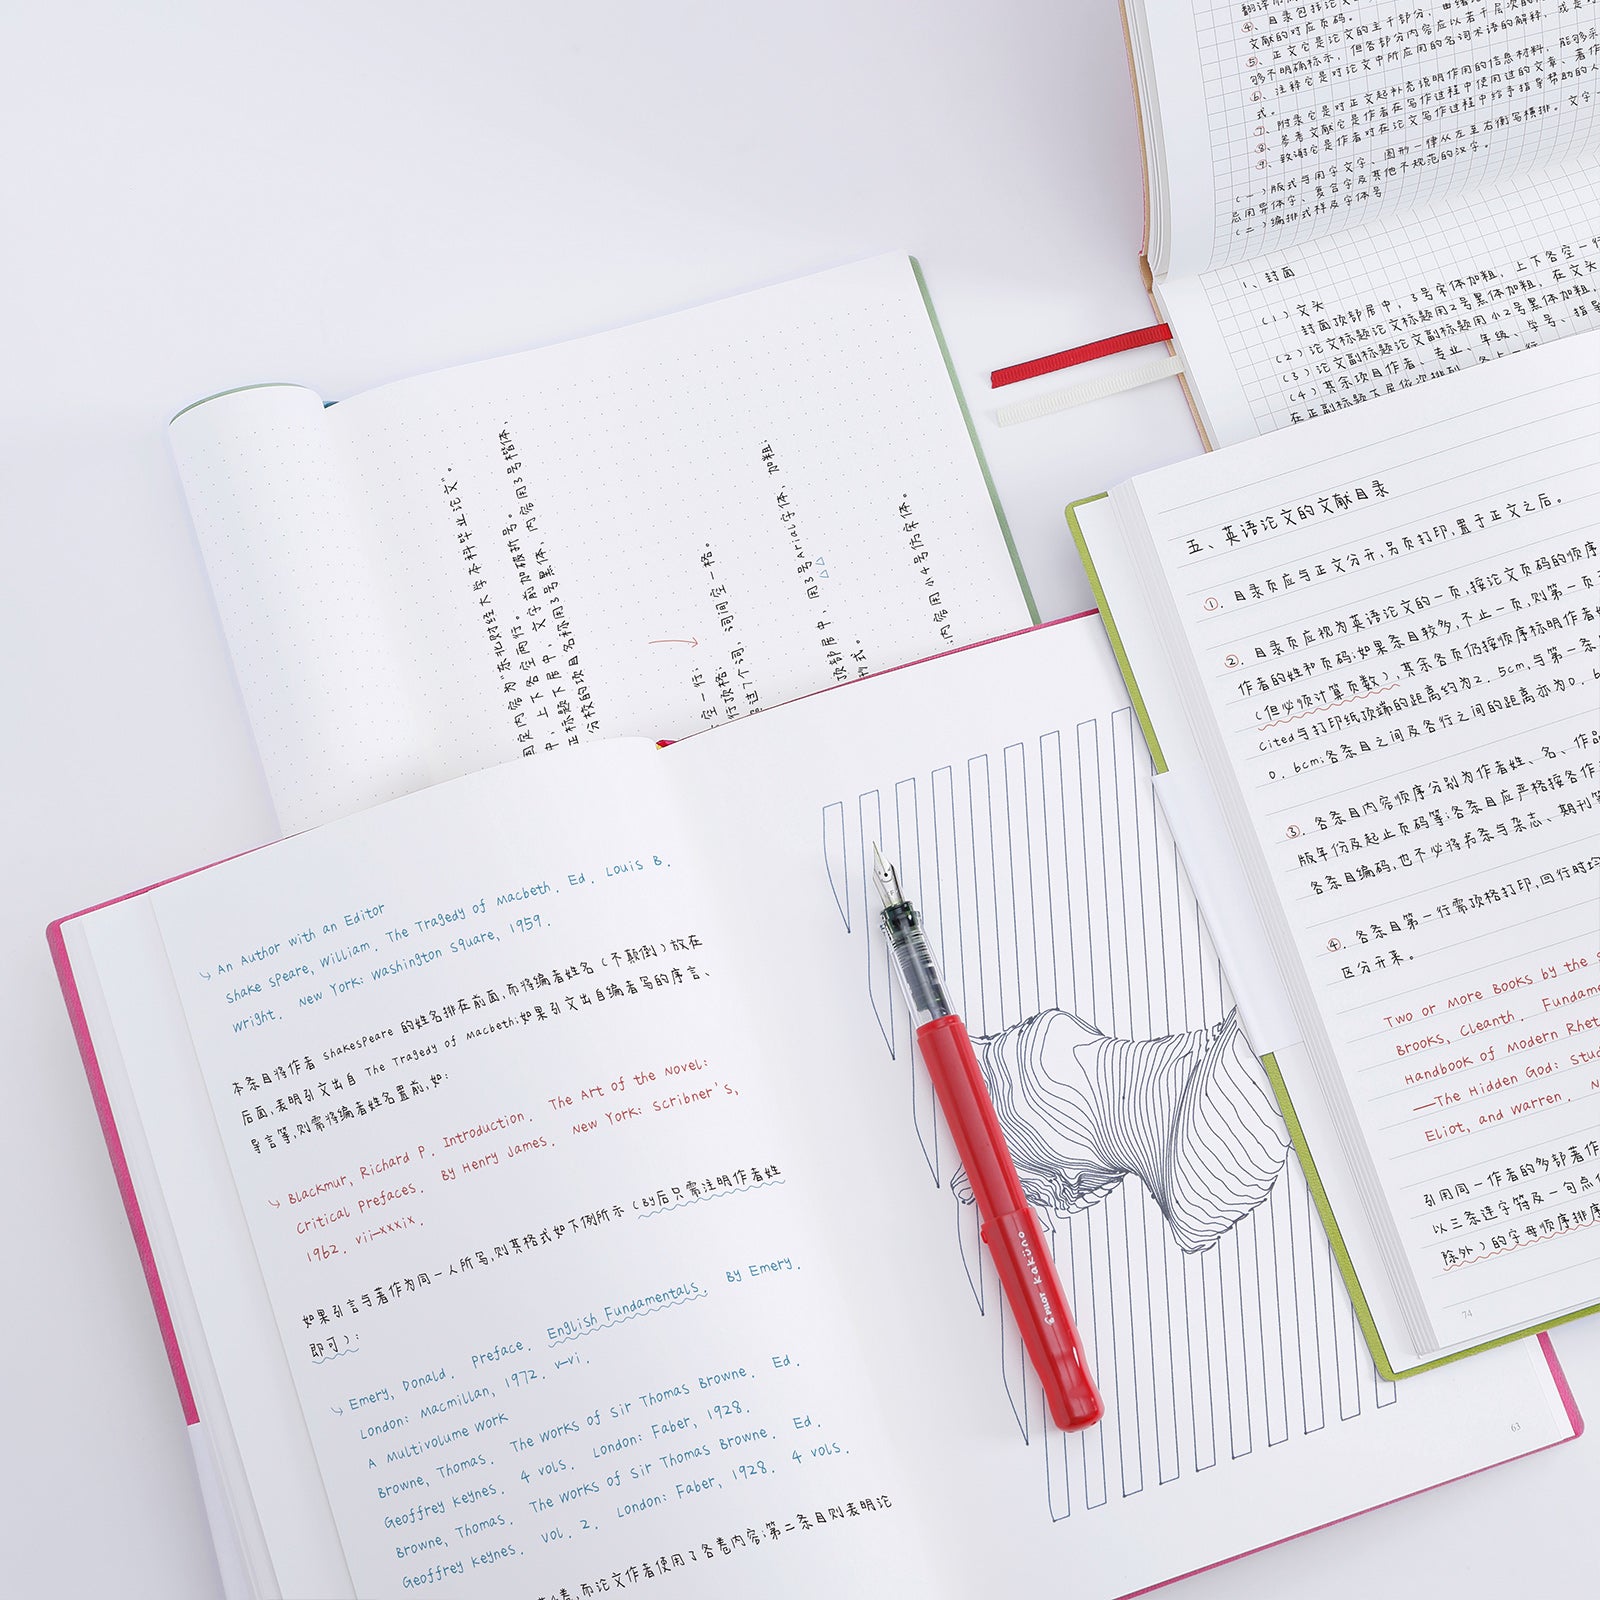 ④、目录包括论文
文献的对应页码。
⑤、正文它是论文的主干部分，由绪论
够不明确标示，但各部分内容应以若干层次的
⑥、注释它是对论文中所应用的名词术语的解释，或是
式。
⑦、附录它是对正文起补充说明作用的信息材料，能够采
⑧、参考文献它是作者在写作过程中使用过的文章、著作
⑨、致谢它是作者对在论文写作过程中给予指导帮助的人
（一）版式与用字文字、图形一律从左至右衡写横排。文字一
忌用异体字、复合字及其他不规范的汉字。
（二）编排式样及字体号
1、封面
（1）文头
封面顶部居中，3号宋体加粗，上下各空一行
（2）论文标题论文标题用2号黑体加粗，在文头
（3）论文副标题论文副标题用小2号黑体加粗，
（4）其余项目作者、专业、年级、学号、指导
在正副标题下居依次排列，各占一行
固定内容为"东北财经大学本科毕业论文"。
中，上下各空两行。
正标题下居中，文字前加破折号。
分校的项目名称用3号黑体，内容用3号楷体，
空一行：
行顶格；
超过7个词，词间空一格。
顶部居中，用3号Arial字体，加粗.
式。
内容用小4号仿宋体。
五、英语论文的文献目录
①. 目录页应与正文分开,另页打印,置于正文之后。
②. 目录页应视为英语论文的一页,按论文页码的顺序
作者的姓和页码;如果条目较多,不止一页,则第一页
（但必须计算页数）,其余各页仍按顺序标明作者姓
Cited与打印纸顶端的距离约为2. 5cm,与第一条
0. 6cm;各条目之间及各行之间的距离亦为0. 6
③. 各条目内容顺序分别为作者姓、名、作品
版年份及起止页码等;各条目应严格按各作
各条目编码,也不必将书条与杂志、期刊等
④. 各条目第一行需顶格打印,回行时均
区分开来。
Two or More Books by the s
Brooks, Cleanth. Fundame
Handbook of Modern Rhet
—The Hidden God: Stud
Eliot, and Warren. N
引用同一作者的多部著作
以三条连字符及一句点
除外）的字母顺序排序
74
An Author with an Editor
Shake speare, William. The Tragedy of Macbeth. Ed. Louis B.
Wright. New York: Washington Square, 1959.
本条目将作者 Shakespeare 的姓名排在前面,而将编者姓名（不颠倒）放在
后面,表明引文出自 The Tragedy of Macbeth;如果引文出自编者写的序言、
导言等,则需将编者姓名置前,如:
Blackmur, Richard P. Introduction. The Art of the Novel:
Critical Prefaces. By Henry James. New York: Scribner's,
1962. vii-xxxix.
如果引言与著作为同一人所写,则其格式如下例所示（By后只需注明作者姓
即可）:
Emery, Donald. Preface. English Fundamentals. By Emery.
London: Macmillan, 1972. v-vi.
A Multivolume Work
Browne, Thomas. The Works of Sir Thomas Browne. Ed.
Geoffrey Keynes. 4 vols. London: Faber, 1928.
Browne, Thomas. The Works of Sir Thomas Browne. Ed.
Geoffrey Keynes. Vol. 2. London: Faber, 1928. 4 vols.
卷,而论文作者使用了各卷内容;第二条目则表明论
PILOT kakuno
F
63